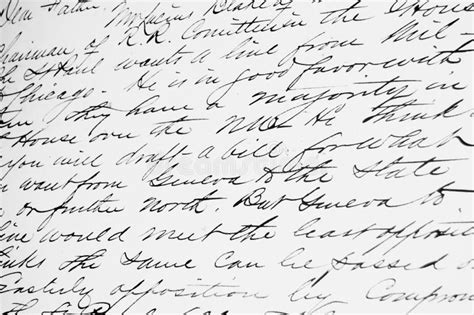 Dear Father. in the House
Chairman of R.R. Committee in the
St Paul wants a line from Mil-
Chicago. He is in good favor with
They have a majority in
House over the He think
you will draft a bill for what
want from Geneva to the State
or further north. But Geneva to
line would meet the least opposit
thinks the same can be passed o
Easterly opposition by Comprom